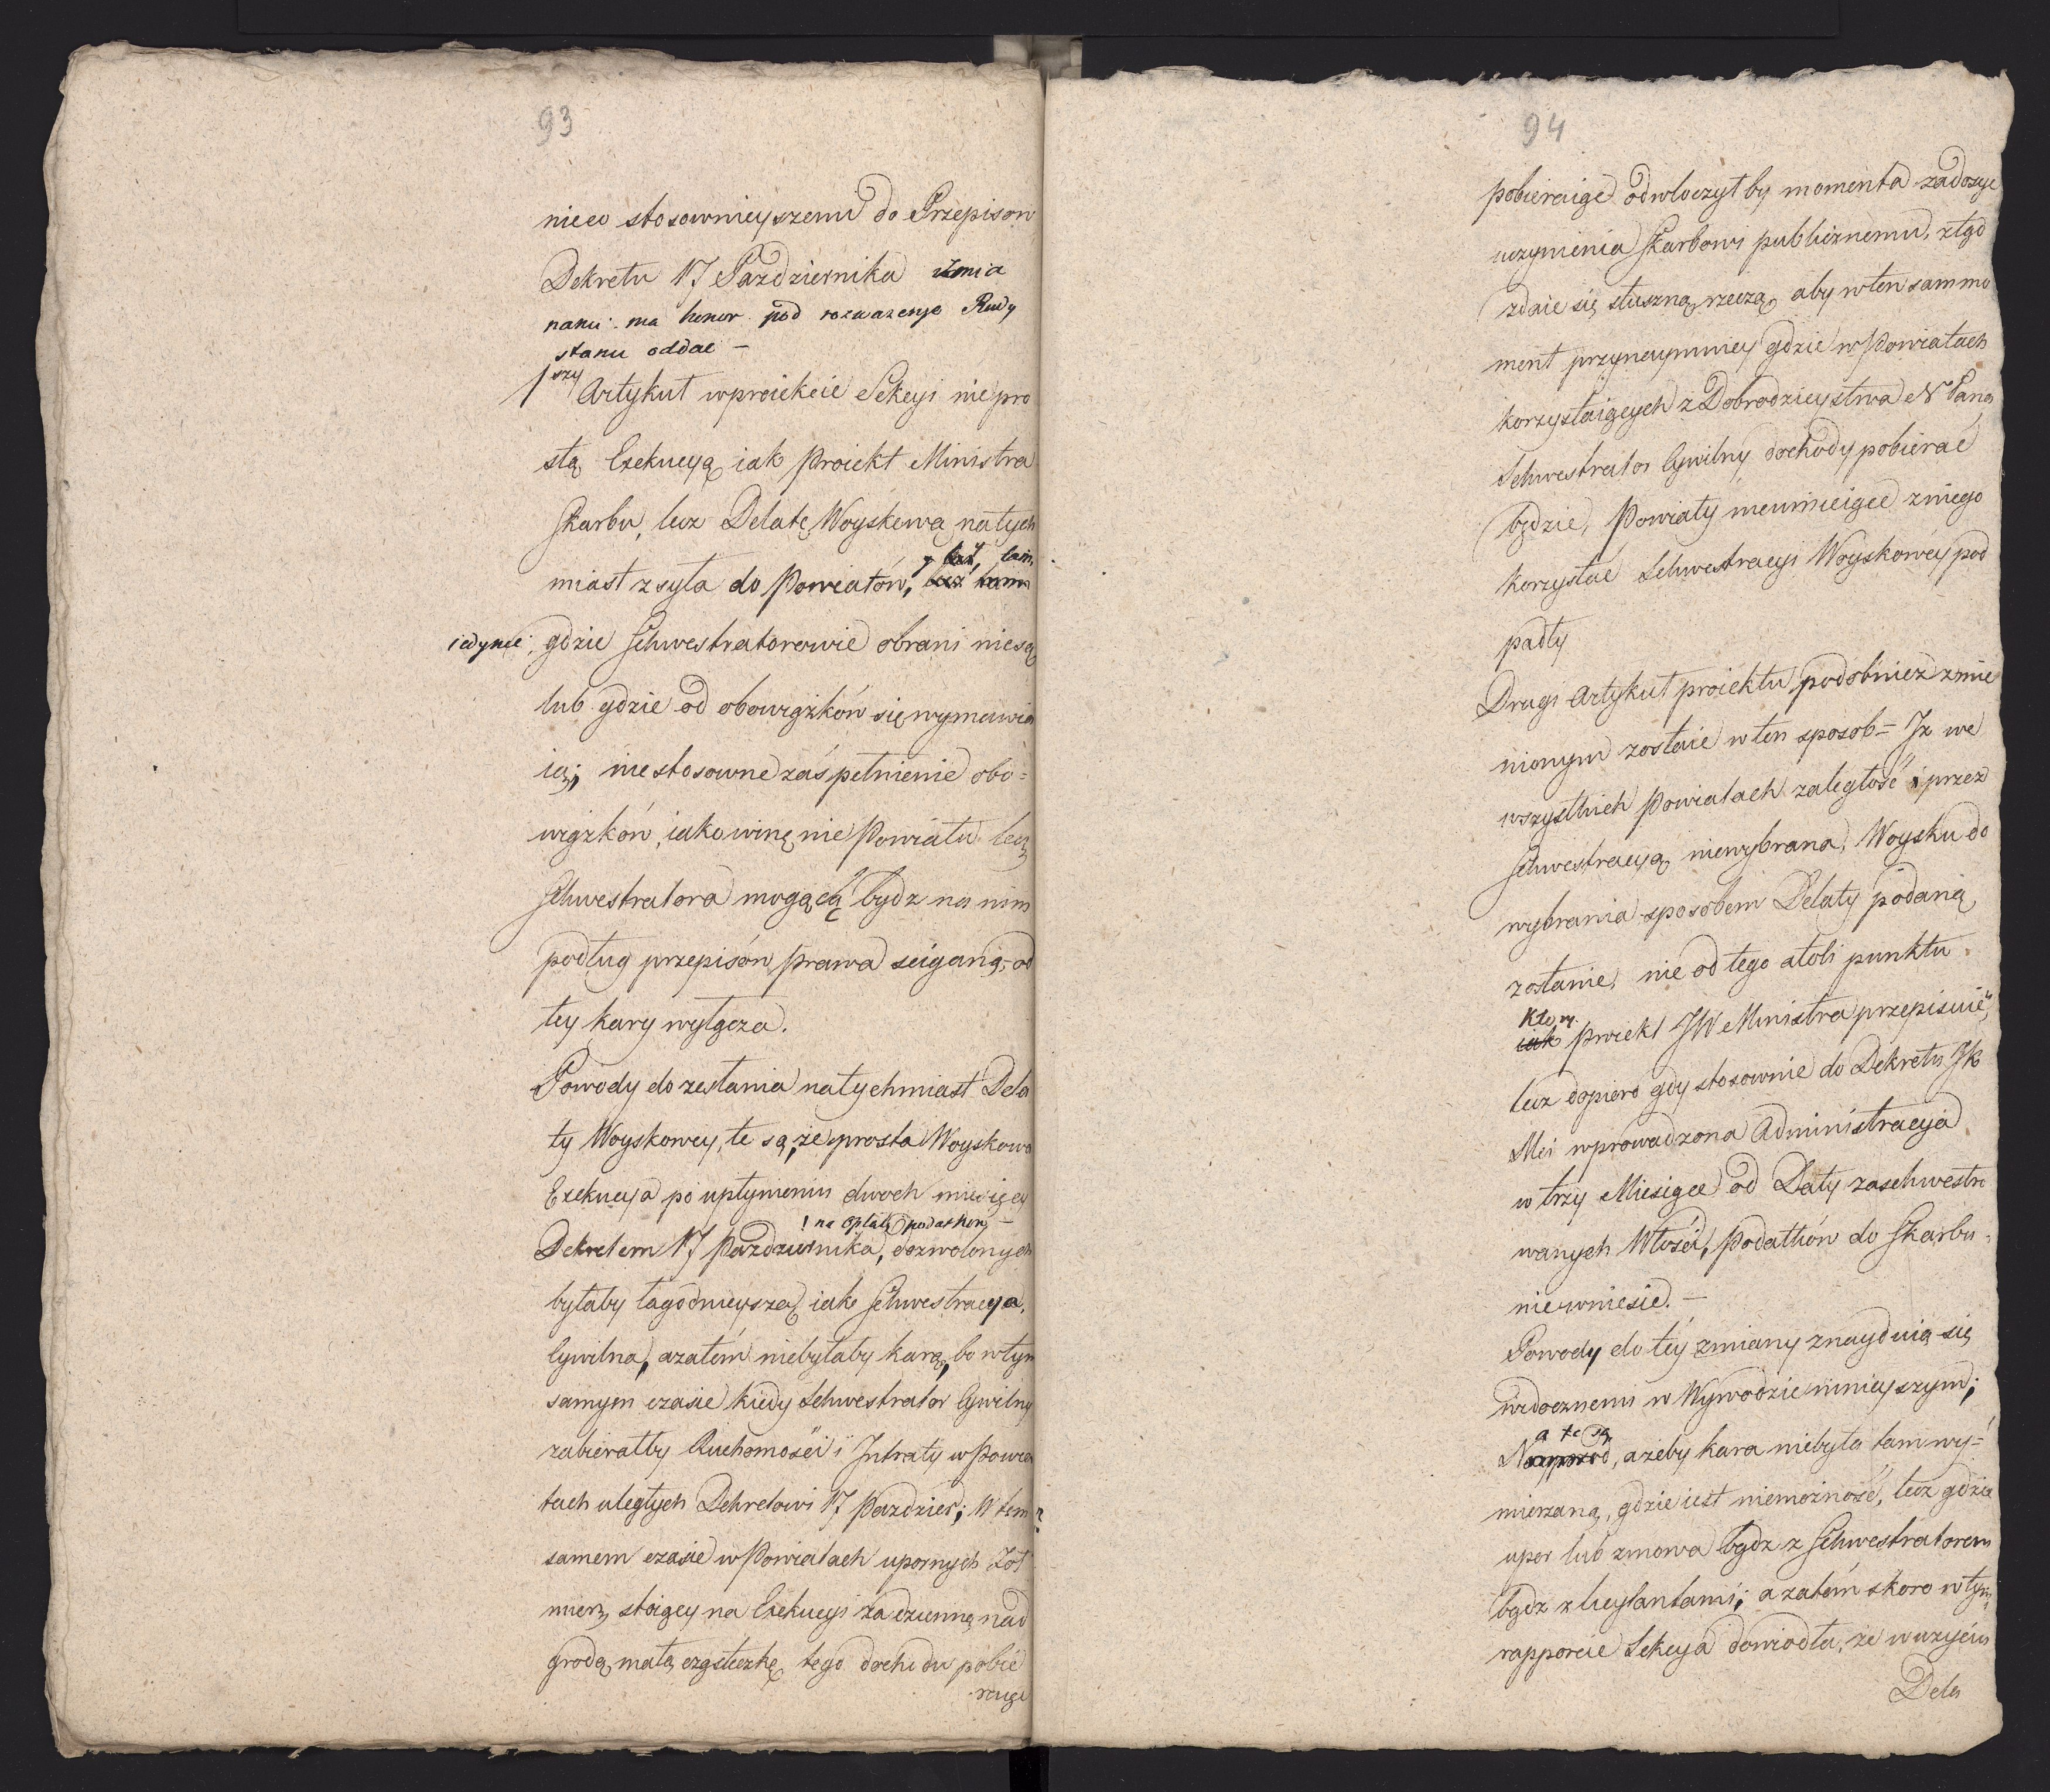 93
nieco stosownieyszemu do Przepisow
Dekretu 17 Pazdziernika
nami ma honor pod rozwazenie Rady
stanu oddać –
1szy Artykuł w proiekcie Sekcyi nie pro
stą Exekucyą iak Proiekt Ministra
Skarbu, lecz Delatę Woyskową natych
miast zsyła do Powiatów, lecz tam
iedynie, gdzie Sekwestratorowie obrani nie są
lub gdzie od obowiązków się wymawia
ią; niestosowne zaś pełnienie obo=
wiązków, iako winę nie Powiatu lecz
Sekwestratora mogącą bydz na nim
podług przepisów prawa ścigana, od
tey kary wyłącza.
Powody do zesłania natychmiast Dela
ty Woyskowey, te są, że prosta Woyskowa
Exekucya po upłynieniu dwoch miesięcy
! na opłatę podatków –
Dekretem 17 Pazdziernika, dozwolonych
byłaby łagodnieyszą iak Sekwestracya
Cywilna, azatém niebyłaby karą, bo w tym
samym czasie kiedy Sekwestrator Cywilny
zabierałby Ruchomości i Intraty w Powia
tach uległych Dekretowi 17 Pazdzier; W tem
samem czasie w Powiatach upornych Żoł
nierz stoiący na Exekucyi za dzienną nad
grodą małą cząsteczkę tego dochodu pobie
raiąc
94
pobieraiąc odwłoczył by momenta zadosyc
uczynienia Skarbowi publicznemu, ztąd
zdaie się słuszną rzeczą, aby w ten sam mo
ment przynaymniey gdzie w Powiatach
korzystaiących z Dobrodzieystwa N Pana
Sekwestrator Cywilny dochody pobierać
będzie, Powiaty nieumieiące z niego
korzystać Sekwestracyi Woyskowéy pod
padły
Drugi Artykuł proiektu podobnież zmie
nionym zostaie w ten sposob = Iż we
wszystkich Powiatach zaległość i przez
Sekwestracyą niewybrana, Woysku do
wybrania sposobem Delaty podaną
zostanie, nie od tego atoli punktu
który
iak proiekt JW Ministra przepisuie,
lecz dopiero gdy stosownie do Dekretu JK
Mci wprowadzona Administracya
w trzy Miesiące od Daty zasekwestro
wanych Włości, Podatków do Skarbu
nie wniesie. –
Powody do téy zmiany znayduią się
widocznemi w Wywodzie ninieyszym;
a te są
Nayprzód, ażeby kara niebyła tam wy=
mierzaną, gdzie iest niemożność, lecz gdzie
upor lub zmowa bądz z Sekwestratorem
bądz z licytantami; a zatém skoro w tym
rapporcie Sekcya dowiodła, że w uzyciu
Dela